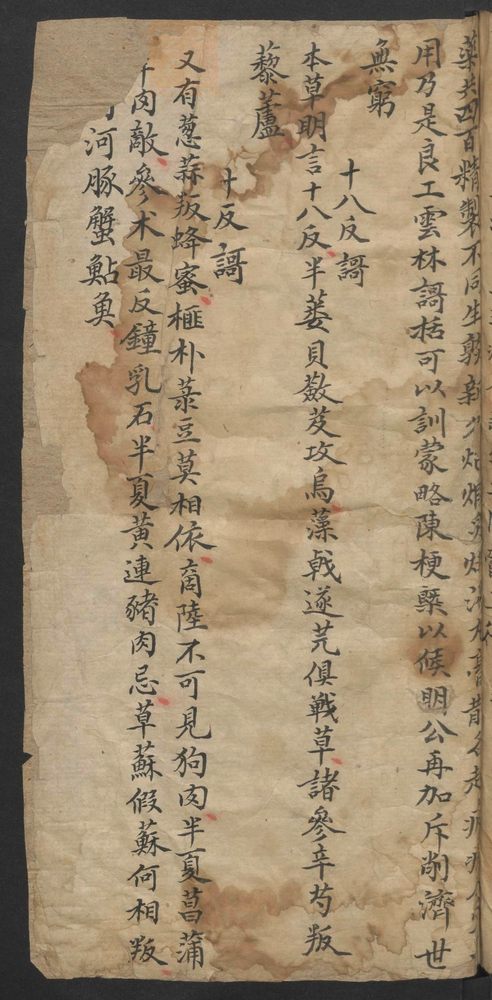 藥共四百精製不同生熟新久炮煆炙
用乃是良工雲林謌括可以訓蒙略陳梗槩以候明公再加斥削濟世
無窮
十八反謌
本草明言十八反半蔞貝蘞芨攻烏藻戟遂芫俱戰草諸參辛芍叛
藜蘆
十反謌
又有葱蒜叛蜂蜜榧朴菉豆莫相依啇陸不可見狗肉半夏菖蒲
羊肉敵參术最反鐘乳石半夏黃連豬肉忌草蘇假蘇何相叛
河豚蟹鮎魚